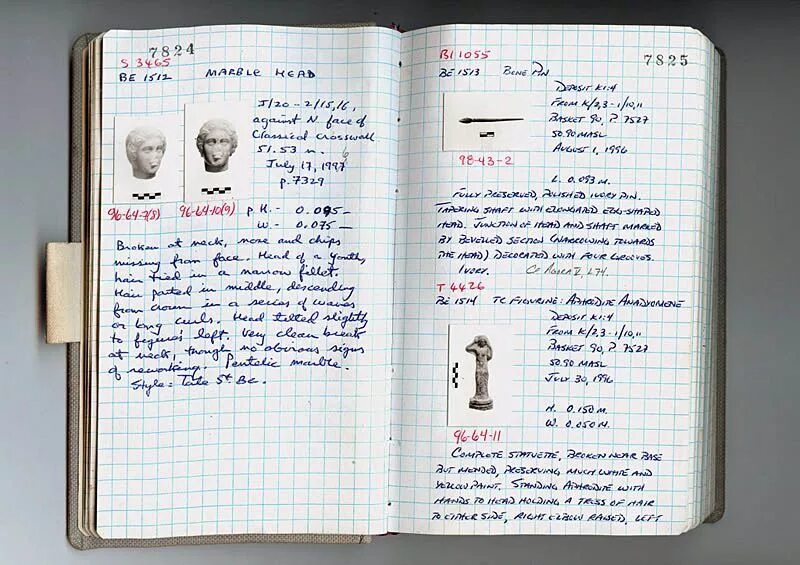 7824
S 3465
BE 1512 MARBLE HEAD
J/20 - 2/15,16,
against N. face of
Classical Crosswall.
51.53 m.
July 17, 1997 6
p. 7329
96-64-7(8) 96-64-10(9)
p. H. - 0.095 -
W. - 0.075 -
Broken at neck, nose and chips
missing from face. Head of a youth,
hair tied in a narrow fillet.
Hair parted in middle, descending
from crown in a series of waves
or long curls. Head tilted slightly
to figures left. Very clean break
at neck, though no obvious signs
of reworking. Pentelic marble.
Style: Late 5th BC.
7825
BI 1055
BE 1513 BONE PIN
DEPOSIT K1:4
FROM K/2,3-1/10,11
BASKET 90, P. 7527
50.90 MASL
AUGUST 1, 1996
98-43-2
L. 0.093 M.
FULLY PRESERVED, POLISHED IVORY PIN.
TAPERING SHAFT WITH ELONGATED EGG-SHAPED
HEAD. JUNCTION OF HEAD AND SHAFT MARKED
BY BEVELLED SECTION (NARROWING TOWARDS
THE HEAD) DECORATED WITH FOUR GROOVES.
IVORY. Cf. AGORA V, L74.
T 4426
BE 1514 TC FIGURINE: APHRODITE ANADYOMENE
DEPOSIT K1:4
FROM K/2,3-1/10,11
BASKET 90, P. 7527
50.90 MASL
JULY 30, 1996
H. 0.150 M.
W. 0.050 M.
96-64-11
COMPLETE STATUETTE, BROKEN NEAR BASE
BUT MENDED, PRESERVING MUCH WHITE AND
YELLOW PAINT. STANDING APHRODITE WITH
HANDS TO HEAD HOLDING A TRESS OF HAIR
TO EITHER SIDE, RIGHT ELBOW RAISED, LEFT